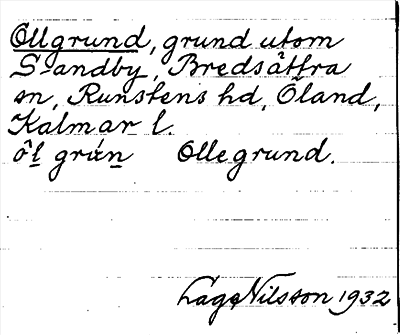 Ollgrund, grund utom
Sandby, Bredsättra
sn, Runstens hd, Öland,
Kalmar l.
ôl grán Ollegrund.
Lage Nilsson 1932